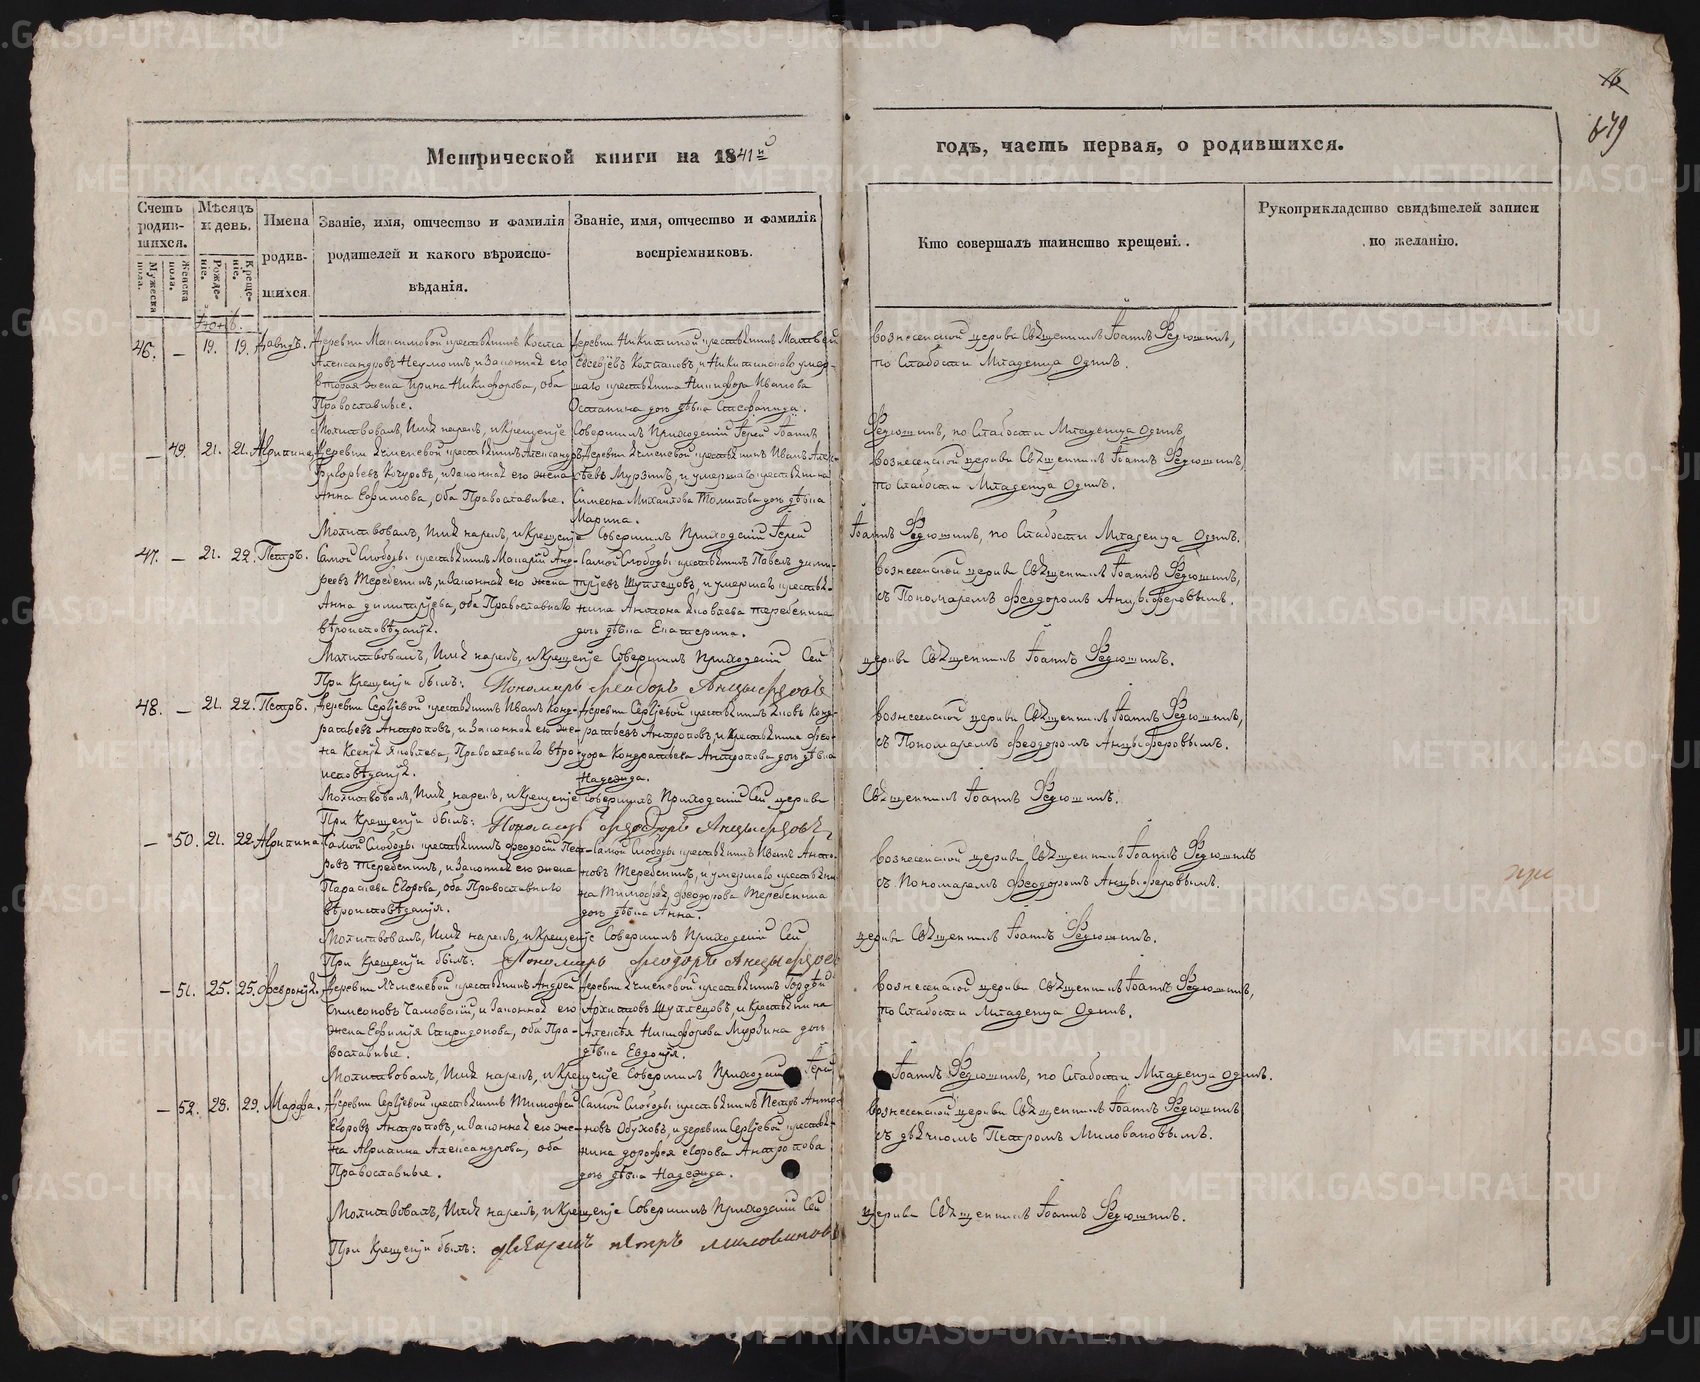 16
679
Метрической книги на 1841й
годъ, часть первая, о родившихся.
Счетъ родив-шихся.
Мужеска пола.
Женска пола.
Мѣсяцъ и день.
Рожде-нія.
Креще-нія.
Имена родив-шихся.
Званіе, имя, отчество и фамилія родителей и какого вѣроиспо-вѣданія.
Званіе, имя, отчество и фамилія воспріемниковъ.
Кто совершалъ таинство крещенія.
Рукоприкладство свидѣтелей записи по желанію.
46. — 19. 19. Давидъ.
Александровъ и законная его
вторая жена Ирина Никифорова, оба
Православные.
Деревни Никитиной крестьянинъ Матвей
шаго крестьянина Никифора Иванова
Останина дочь дѣвка Стефанида.
Вознесенской церкви Священникъ Іоаннъ Федюшинъ,
по Слабости Младенца Одинъ.
Молитвовалъ, Имя нарекъ, и Крещеніе Совершилъ Приходскій Іерей Іоаннъ
Федюшинъ, по Слабости Младенца Одинъ.
— 49. 21. 21. Акрипина.
Деревни крестьянинъ Александръ
Григорьевъ и законная его жена
Анна Ефимова, оба Православные.
Симеона Михайлова дочь дѣвка
Марина.
Вознесенской церкви Священникъ Іоаннъ Федюшинъ,
по Слабости Младенца Одинъ.
Молитвовалъ, Имя нарекъ, и Крещеніе Совершилъ Приходскій Іерей
Іоаннъ Федюшинъ, по Слабости Младенца Одинъ.
47. — 21. 22. Петръ.
Самой Слободы крестьянинъ Макарій Анд-
реевъ Теребенинъ, и законная его жена
Анна Димитріева, оба Православнаго
вѣроисповѣданія.
Самой Слободы крестьянинъ Павелъ Дими-
тріевъ Шуплецовъ, и умершаго крестья-
нина Антона Яковлева Теребенина
дочь дѣвка Екатерина.
Вознесенской церкви Священникъ Іоаннъ Федюшинъ,
съ Пономаремъ Феодоромъ Анцыферовымъ.
Молитвовалъ, Имя нарекъ, и Крещеніе Совершилъ Приходскій Сей
церкви Священникъ Іоаннъ Федюшинъ.
При Крещеніи былъ: Пономарь Феодоръ Анцыферовъ
48. — 21. 22. Петръ.
Деревни Сергіевой крестьянинъ Иванъ Конд-
ратьевъ Антроповъ, и законная его же-
на Ксенія Яковлева, Православнаго вѣро-
исповѣданія.
Деревни Сергіевой крестьянинъ Яковъ Конд-
ратьевъ Антроповъ, и крестьянина Фео-
дора Кондратьева Антропова дочь дѣвка
Надежда.
Вознесенской церкви Священникъ Іоаннъ Федюшинъ,
съ Пономаремъ Феодоромъ Анцыферовымъ.
Молитвовалъ, Имя нарекъ, и Крещеніе Совершилъ Приходскій Сей церкви
Священникъ Іоаннъ Федюшинъ.
При Крещеніи былъ: Пономарь Феодоръ Анцыферовъ
— 50. 21. 22. Акрипина.
Самой Слободы крестьянинъ Феодосій Пет-
ровъ Теребенинъ, и законная его жена
Параскева Егорова, оба Православнаго
вѣроисповѣданія.
Самой Слободы крестьянинъ Иванъ Анто-
новъ Теребенинъ, и умершаго крестьяни-
на Тимофея Феодорова Теребенина
дочь дѣвка Анна.
Вознесенской церкви Священникъ Іоаннъ Федюшинъ
съ Пономаремъ Феодоромъ Анцыферовымъ.
Молитвовалъ, Имя нарекъ, и Крещеніе Совершилъ Приходскій Сей
церкви Священникъ Іоаннъ Федюшинъ.
При Крещеніи былъ: Пономарь Феодоръ Анцыферовъ
— 51. 25. 25. Февронія.
Деревни крестьянинъ Андрей
Симеоновъ и законная его
жена Ефимія Спиридонова, оба Пра-
вославные.
Деревни крестьянинъ Гордѣй
Архиповъ Шуплецовъ, и крестьянина
Алексѣя Никифорова Мурзина дочь
дѣвка Евдокія.
Вознесенской церкви Священникъ Іоаннъ Федюшинъ,
по Слабости Младенца Одинъ.
Молитвовалъ, Имя нарекъ, и Крещеніе Совершилъ Приходскій Іерей
Іоаннъ Федюшинъ, по Слабости Младенца Одинъ.
— 52. 28. 29. Марфа.
Деревни Сергіевой крестьянинъ Тимофей
Егоровъ Антроповъ, и законная его же-
на Акрипина Александрова, оба
Православные.
Самой Слободы крестьянинъ Петръ Анто-
новъ Обуховъ, и деревни Сергіевой крестья-
нина Дорофея Егорова Антропова
дочь дѣвка Надежда.
Вознесенской церкви Священникъ Іоаннъ Федюшинъ
съ дьячкомъ Петромъ Миловановымъ.
Молитвовалъ, Имя нарекъ, и Крещеніе Совершилъ Приходскій Сей
церкви Священникъ Іоаннъ Федюшинъ.
При Крещеніи былъ: дьячекъ Петръ Миловановъ
METRIKI.GASO-URAL.RU